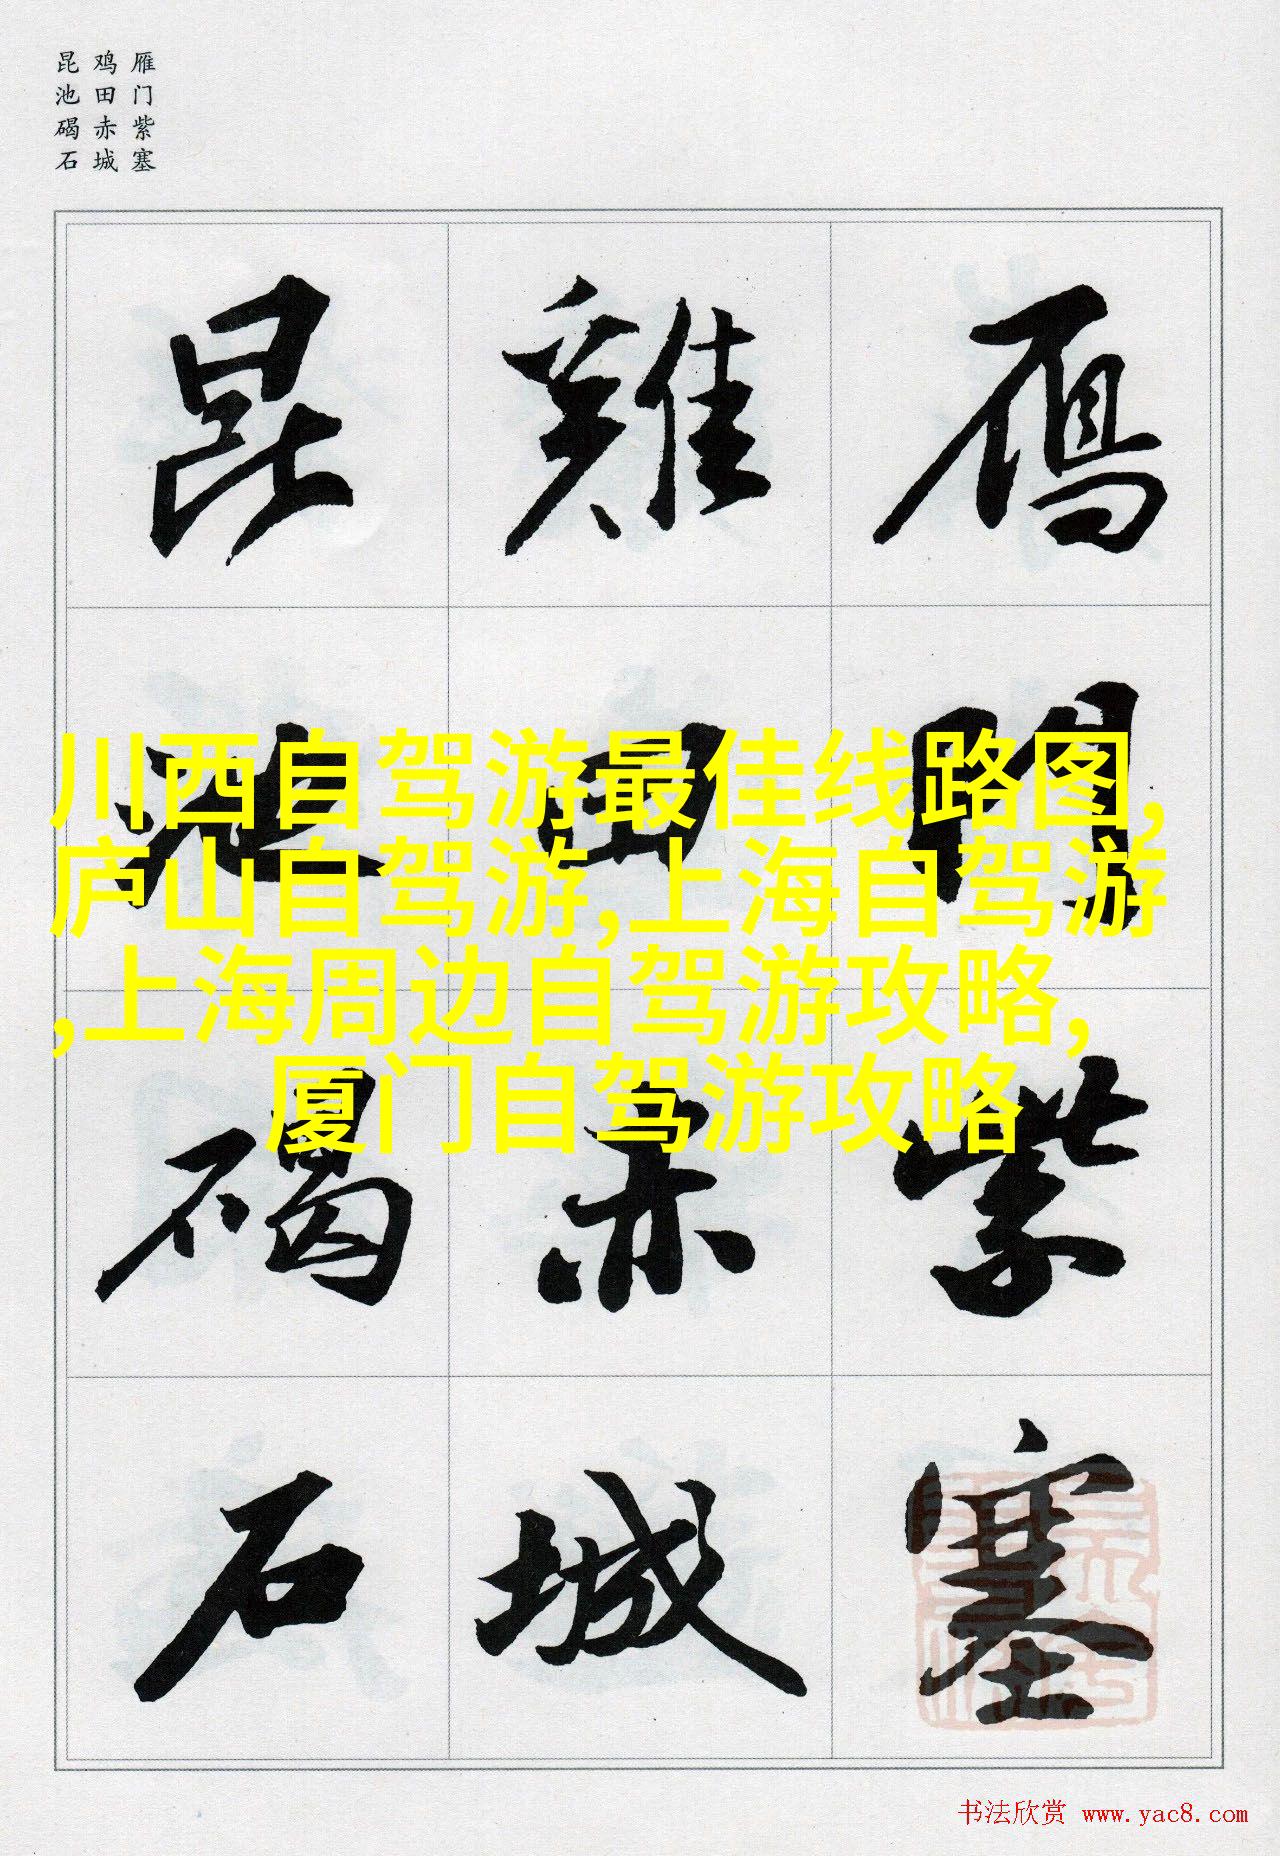 雁门紫塞
鸡田赤城
昆池碣石
鴈門紫塞
雞田赤城
昆池碣石
川西自驾游最佳线路图,
庐山自驾游,上海自驾游
,上海周边自驾游攻略,
厦门自驾游攻略
书法欣赏 www.yac8.com